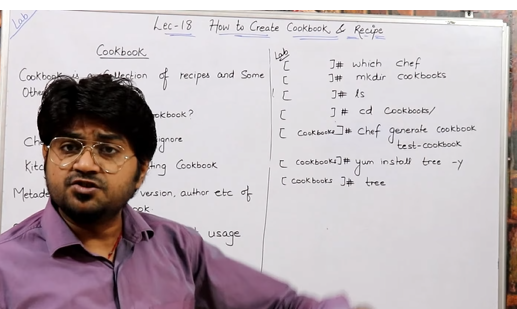 Lab
Lec-18 How to Create Cookbook & Recipe
Cookbook
Cookbook is a Collection of recipes and Some
Othe
okbook?
Che ignore
Kitc ting Cookbook
Metada version, author etc of
ook
usage
Lab
[ ]# which chef
[ ]# mkdir cookbooks
[ ]# ls
[ ]# cd cookbooks/
[ cookbooks]# chef generate cookbook
test-cookbook
[ cookbooks]# yum install tree -y
[ cookbooks ]# tree